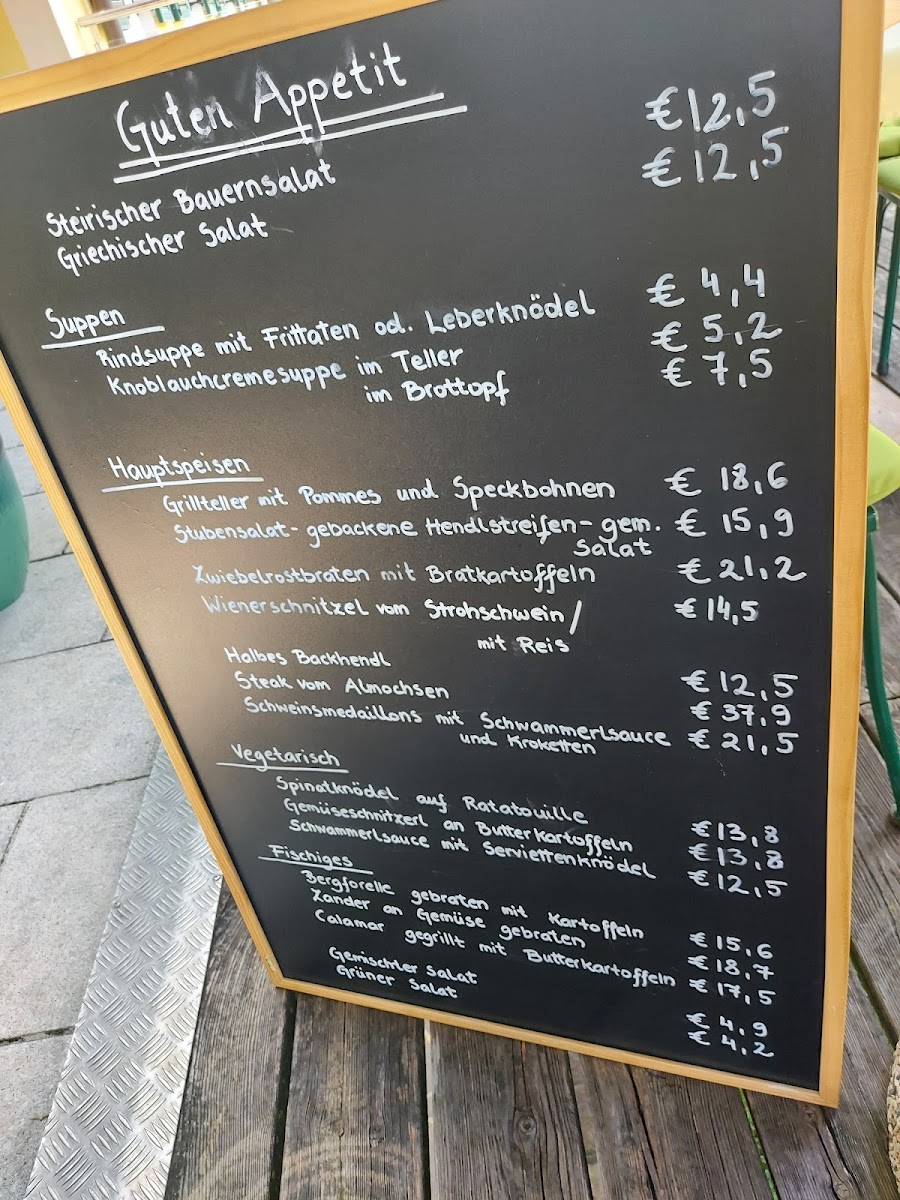 Guten Appetit
Steirischer Bauernsalat € 12,5
Griechischer Salat € 12,5
Suppen
Rindsuppe mit Frittaten od. Leberknödel € 4,4
Knoblauchcremesuppe im Teller € 5,2
im Brottopf € 7,5
Hauptspeisen
Grillteller mit Pommes und Speckbohnen € 18,6
Stubensalat - gebackene Hendlstreifen - gem. € 15,9
Salat
Zwiebelrostbraten mit Bratkartoffeln € 21,2
Wienerschnitzel vom Strohschwein / € 14,5
mit Reis
Halbes Backhendl € 12,5
Steak vom Almochsen € 37,9
Schweinsmedaillons mit Schwammerlsauce € 21,5
und Kroketten
Vegetarisch
Spinatknödel auf Ratatouille € 13,8
Gemüseschnitzerl an Butterkartoffeln € 13,8
Schwammerlsauce mit Serviettenknödel € 12,5
Fischiges
Bergforelle gebraten mit Kartoffeln € 15,6
Zander an Gemüse gebraten € 18,7
Calamar gegrillt mit Butterkartoffeln € 17,5
Gemischter Salat € 4,9
Grüner Salat € 4,2